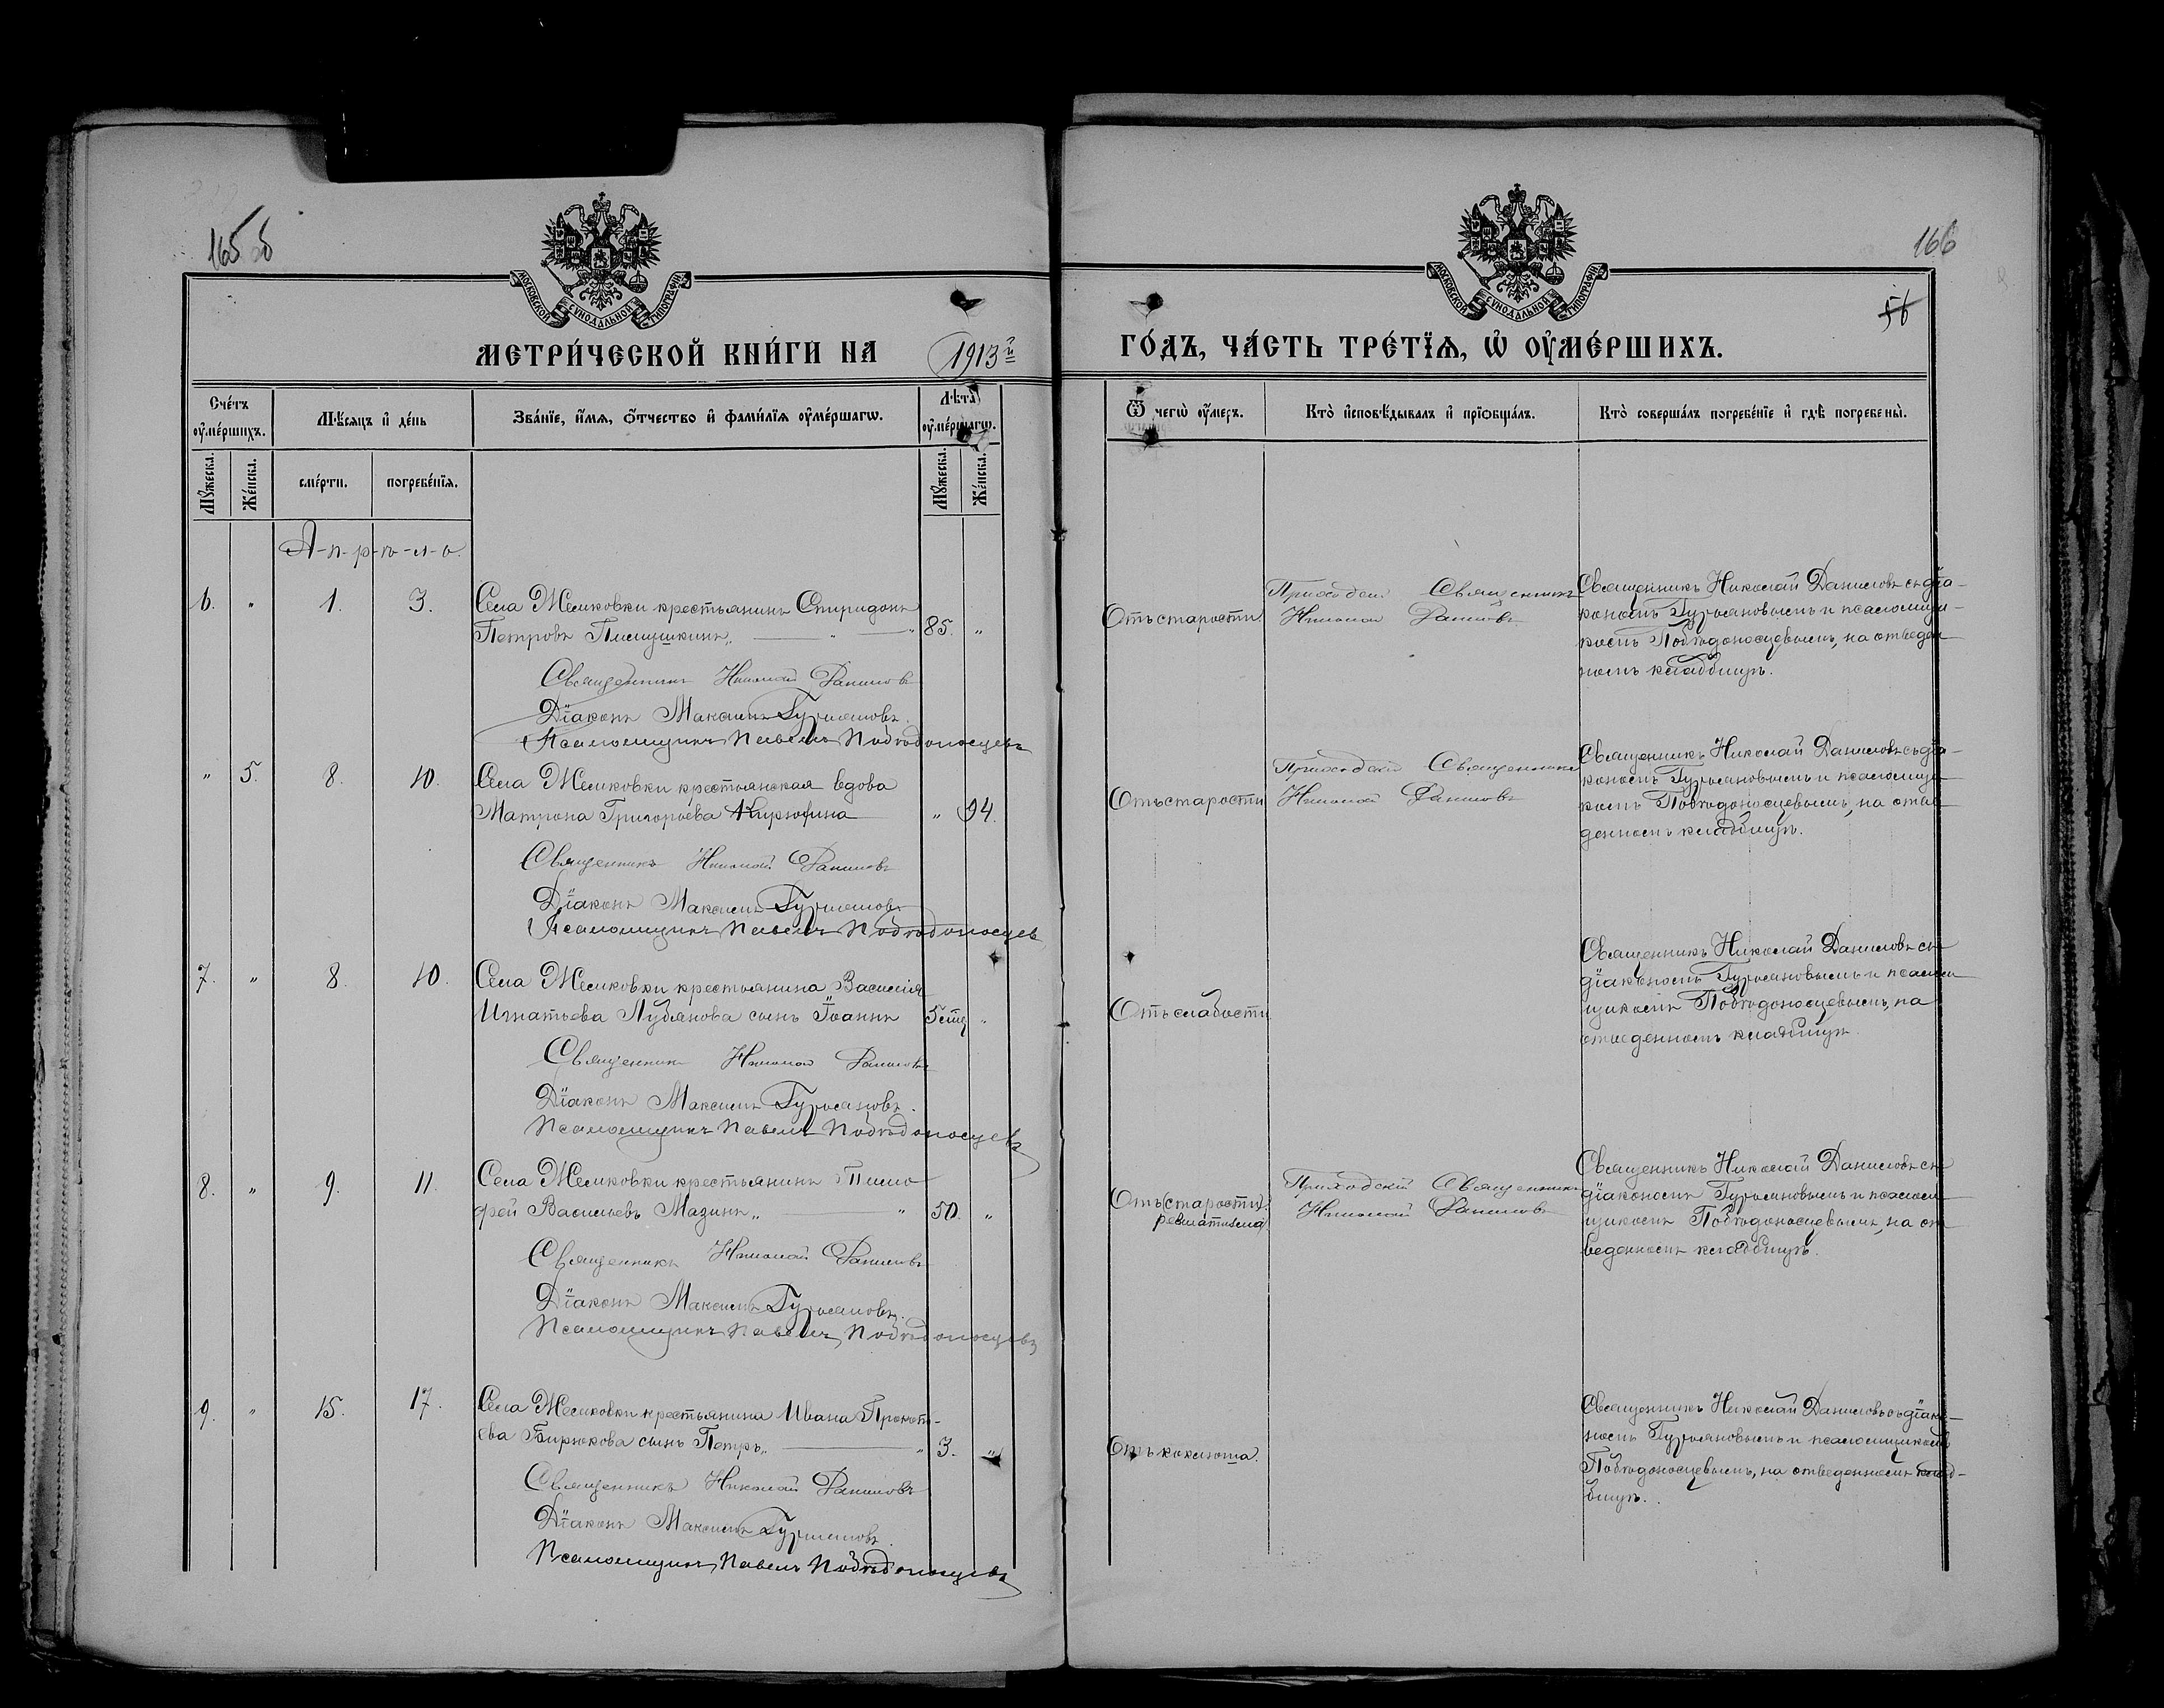 165 об
166
56
МОСКОВСКОЙ СѴНОДАЛЬНОЙ ТИПОГРАФІИ
МОСКОВСКОЙ СѴНОДАЛЬНОЙ ТИПОГРАФІИ
МЕТРИ́ЧЕСКОЙ КНИ́ГИ НА 1913й
ГО́ДЪ, ЧА́СТЬ ТРЕ́ТЇѦ, Ѡ҆ ОУ҆МЕ́РШИХЪ.
Сче́тъ оу҆ме́ршихъ.
Мѣ́сѧцъ и҆ де́нь
Зва́нїе, и҆́мѧ, ѻ҆́тчество и҆ фами́лїѧ оу҆ме́ршагѡ.
Лѣ́та оу҆ме́ршагѡ.
Ѿ чегѡ̀ оу҆́меръ.
Кто̀ и҆сповѣ́дывалъ и҆ прїѡбща́лъ.
Кто̀ соверша́лъ погребе́нїе и҆ гдѣ̀ погребены̀.
Мꙋ́жеска.
Же́нска.
сме́рти.
погребе́нїѧ.
Мꙋ́жеска.
Же́нска.
А-п-р-ѣ-л-ь.
6. " 1. 3. Села Жемковки крестьянинъ Спиридонъ
Петровъ 85. "
Священникъ Николай Даниловъ
Діаконъ Максимъ Гурьяновъ.
Псаломщикъ Павелъ Побѣдоносцевъ
Отъ старости
Приходскій Священникъ
Николай Даниловъ
Священникъ Николай Даниловъ съ діа-
кономъ Гурьяновымъ и псаломщи-
комъ Побѣдоносцевымъ, на отведен-
номъ кладбищѣ.
" 5. 8. 10. Села Жемковки крестьянская вдова
Матрона Григорьева Кирюхина " 94.
Священникъ Николай Даниловъ
Діаконъ Максимъ Гурьяновъ
Псаломщикъ Павелъ Побѣдоносцевъ
Отъ старости
Приходскій Священникъ
Николай Даниловъ
Священникъ Николай Даниловъ съ діа-
кономъ Гурьяновымъ и псаломщи-
комъ Побѣдоносцевымъ, на отве-
денномъ кладбищѣ.
7. " 8. 10. Села Жемковки крестьянина Василія
Игнатьева сынъ Іоаннъ "
Священникъ Николай Даниловъ
Діаконъ Максимъ Гурьяновъ.
Псаломщикъ Павелъ Побѣдоносцевъ
Отъ слабости
Священникъ Николай Даниловъ съ
діакономъ Гурьяновымъ и псалом-
щикомъ Побѣдоносцевымъ, на
отведенномъ кладбищѣ.
8. " 9. 11. Села Жемковки крестьянинъ Тимо
фей Васильевъ Мазинъ 50. "
Священникъ Николай Даниловъ
Діаконъ Максимъ Гурьяновъ.
Псаломщикъ Павелъ Побѣдоносцевъ
Отъ (старости)
ревматизма
Приходскій Священникъ
Николай Даниловъ
Священникъ Николай Даниловъ съ
діакономъ Гурьяновымъ и псалом-
щикомъ Побѣдоносцевымъ, на от-
веденномъ кладбищѣ.
9. " 15. 17. Села Жемковки крестьянина Ивана Прокопь-
ева Бирюкова сынъ Петръ 3. "
Священникъ Николай Даниловъ
Діаконъ Максимъ Гурьяновъ.
Псаломщикъ Павелъ Побѣдоносцевъ
Отъ коклюша.
Священникъ Николай Даниловъ съ діако-
номъ Гурьяновымъ и псаломщикомъ
Побѣдоносцевымъ, на отведенномъ клад-
бищѣ.